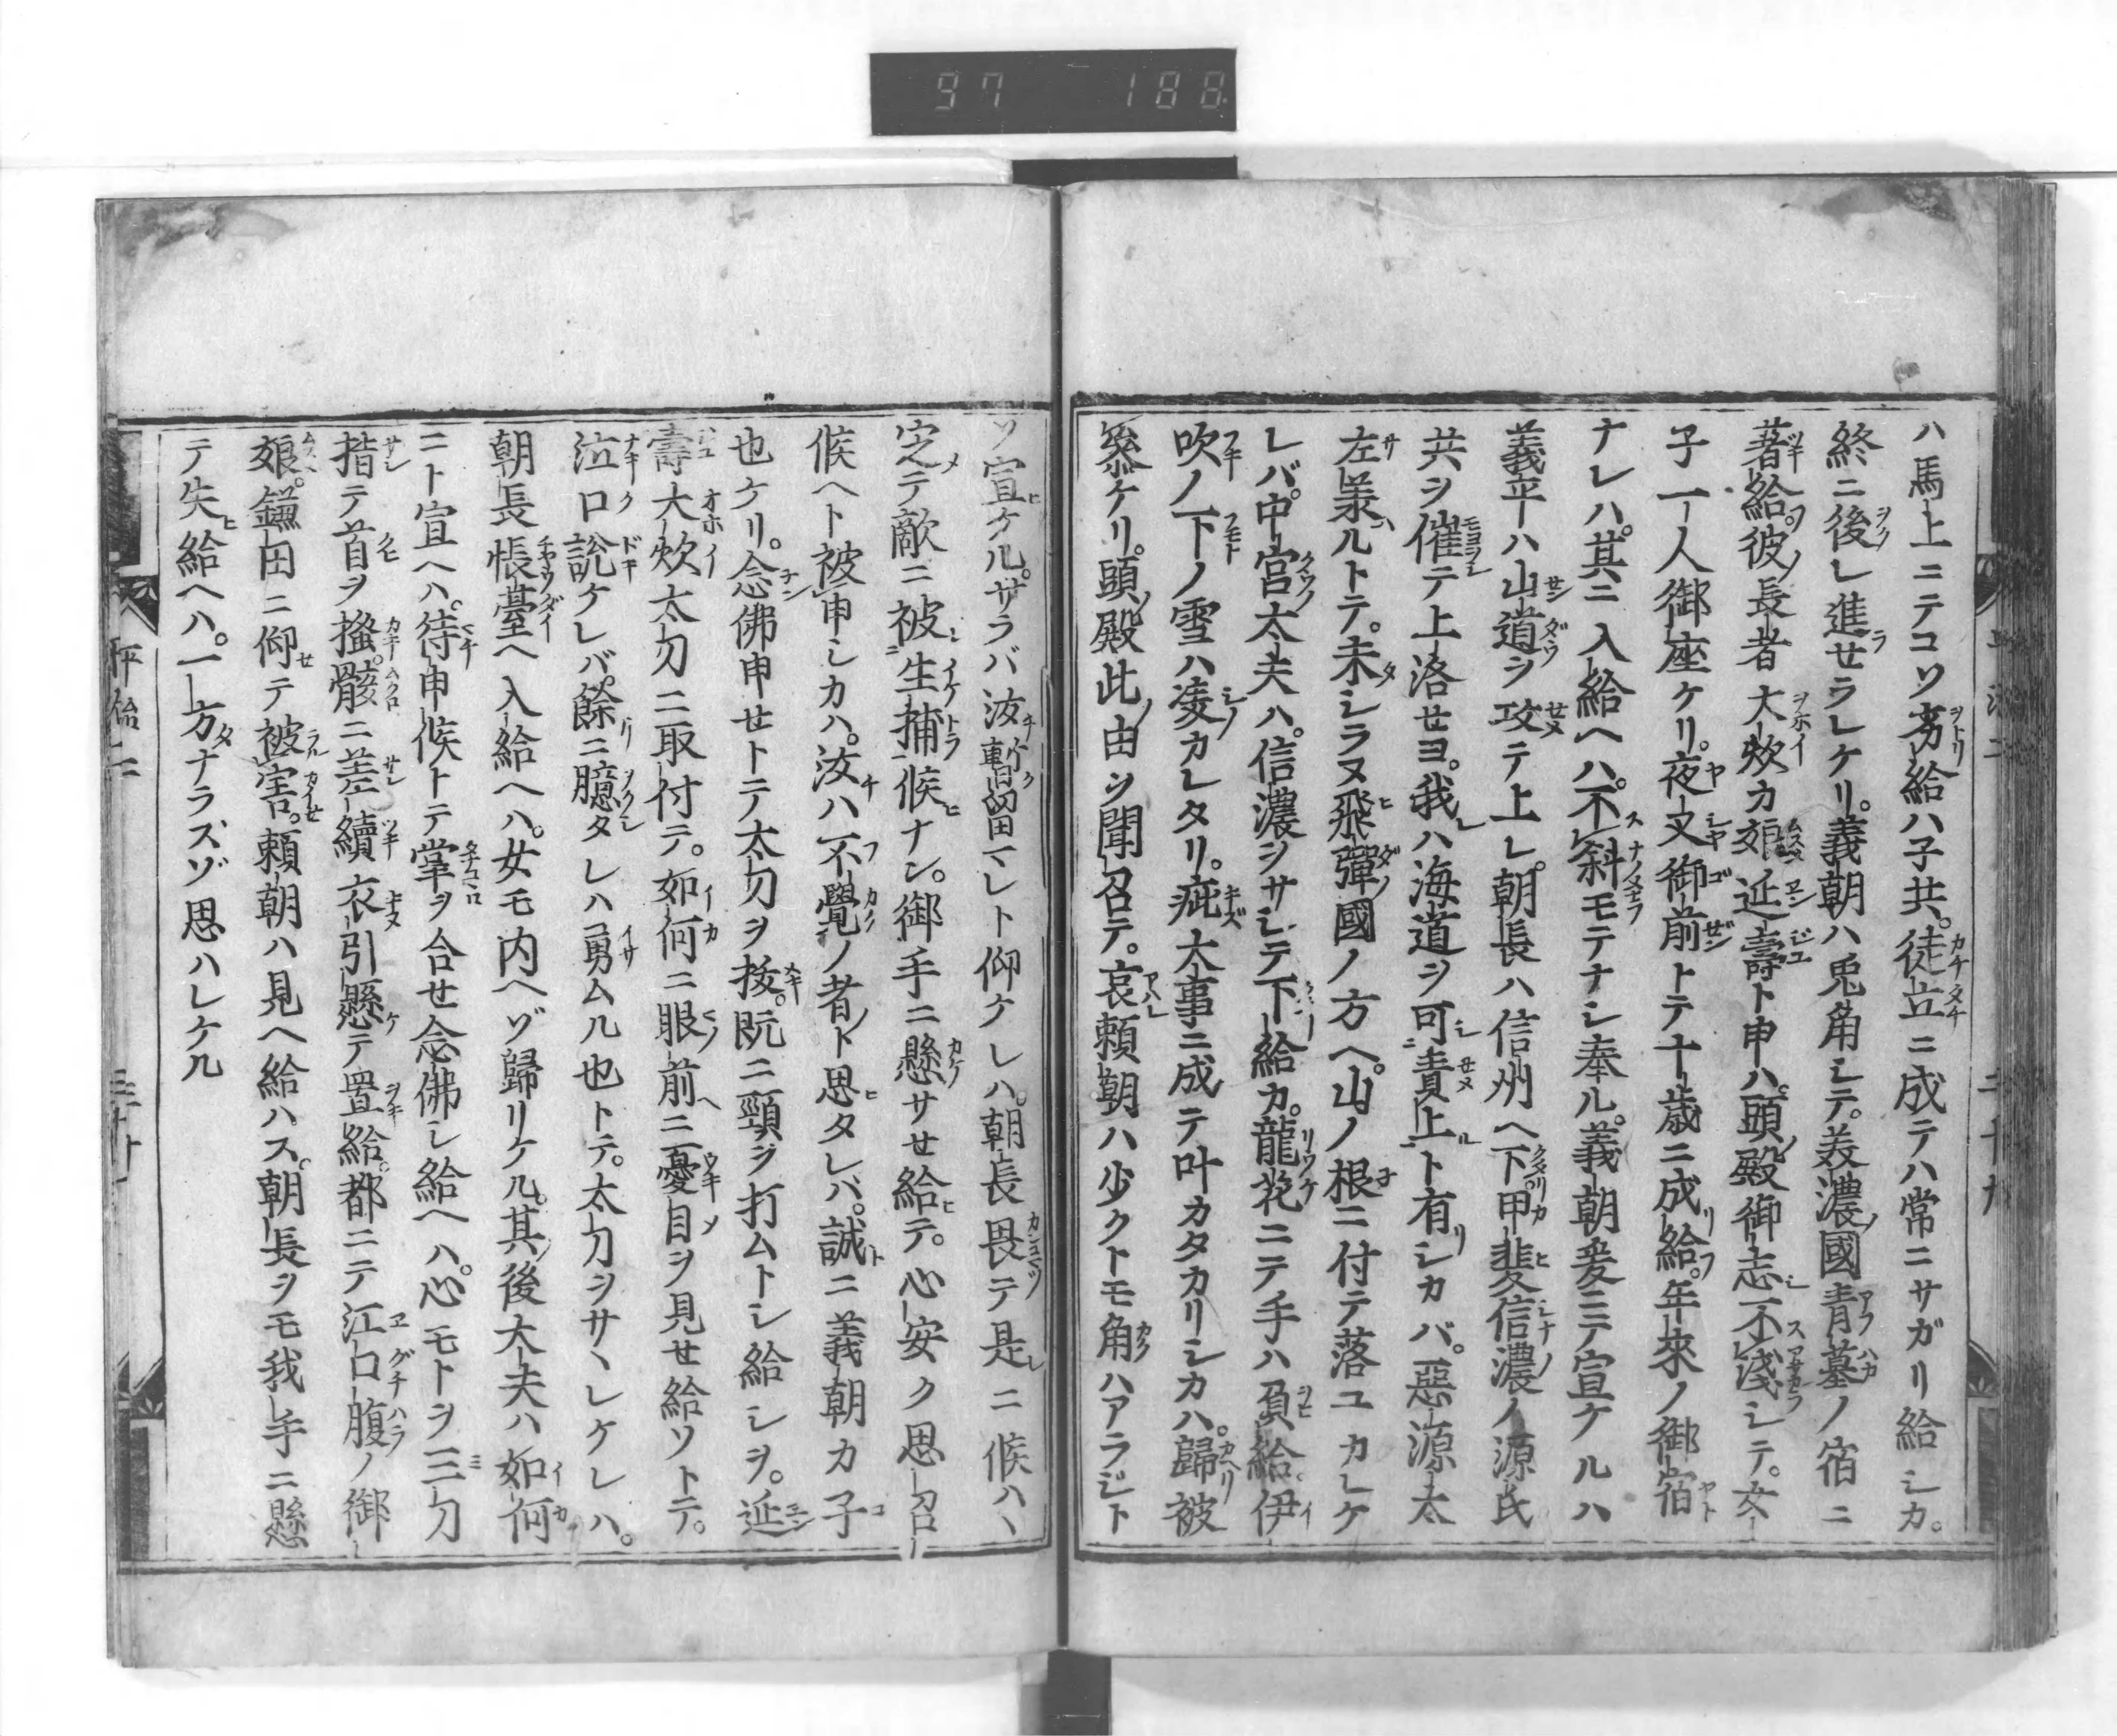 97 188
ハ馬上ニテコソ劣給ハ子共。徒立ニ成テハ常ニサガリ給シカ。
終ニ後レ進セラレケリ。義朝ハ兎角シテ。美濃國青墓ノ宿ニ
著給。彼長者大炊カ娘延壽ト申ハ。頭殿御志不淺シテ。女
子一人御座ケリ。夜叉御前トテ十歳ニ成給。年來ノ御宿
ナレハ。其ニ入給ヘハ。不斜モテナシ奉ル。義朝爰ニテ宣ケルハ
義平ハ山道ヲ攻テ上レ。朝長ハ信州ヘ下。甲斐信濃ノ源氏
共ヲ催テ上洛セヨ。我ハ海道ヲ可責上ト有シカバ。惡源太
左羕ルトテ。未シラヌ飛彈國ノ方ヘ。山ノ根ニ付テ落ユカレケ
レバ。中宮太夫ハ。信濃ヲサシテ下給カ。龍花ニテ手ハ負給。伊
吹ノ下ノ雪ハ凌カレタリ。疵大事ニ成テ叶カタカリシカハ。歸被
參ケリ。頭殿此由ヲ聞召テ。哀頼朝ハ少クトモ角ハアラジト
ソ宣ケル。サラバ汝暫留マレト仰ケレハ。朝長畏テ是ニ候ハヽ
定テ敵ニ被生捕候ナン。御手ニ懸サセ給テ。心安ク思召
候ヘト被申シカハ。汝ハ不覺ノ者ト思タレバ。誠ニ義朝カ子
也ケリ。念佛申セトテ太刀ヲ拔。既ニ頸ヲ打ムトシ給シヲ。延
壽大炊太刀ニ取付テ。如何ニ眼前ニ憂目ヲ見セ給ソトテ。
泣口説ケレバ。餘ニ臆タレハ勇ムル也トテ。太刀ヲサヽレケレハ。
朝長帳臺ヘ入給ヘハ。女モ内ヘゾ歸リケル。其後大夫ハ如何
ニト宣ヘハ。待申候トテ掌ヲ合セ念佛シ給ヘハ。心モトヲ三刀
指テ首ヲ搔。骸ニ差續衣引懸テ置給。都ニテ江口腹ノ御
娘。鎌田ニ仰テ被害。頼朝ハ見ヘ給ハス。朝長ヲモ我手ニ懸
テ失給ヘハ。一方ナラズゾ思ハレケル